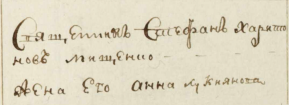 Священникъ Стефанъ Харито
новъ Мищенко
Жена Его Анна Лукянова